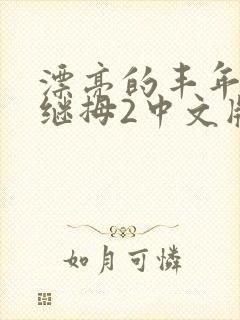 漂亮的丰年
继拇2中文版
如月可憐